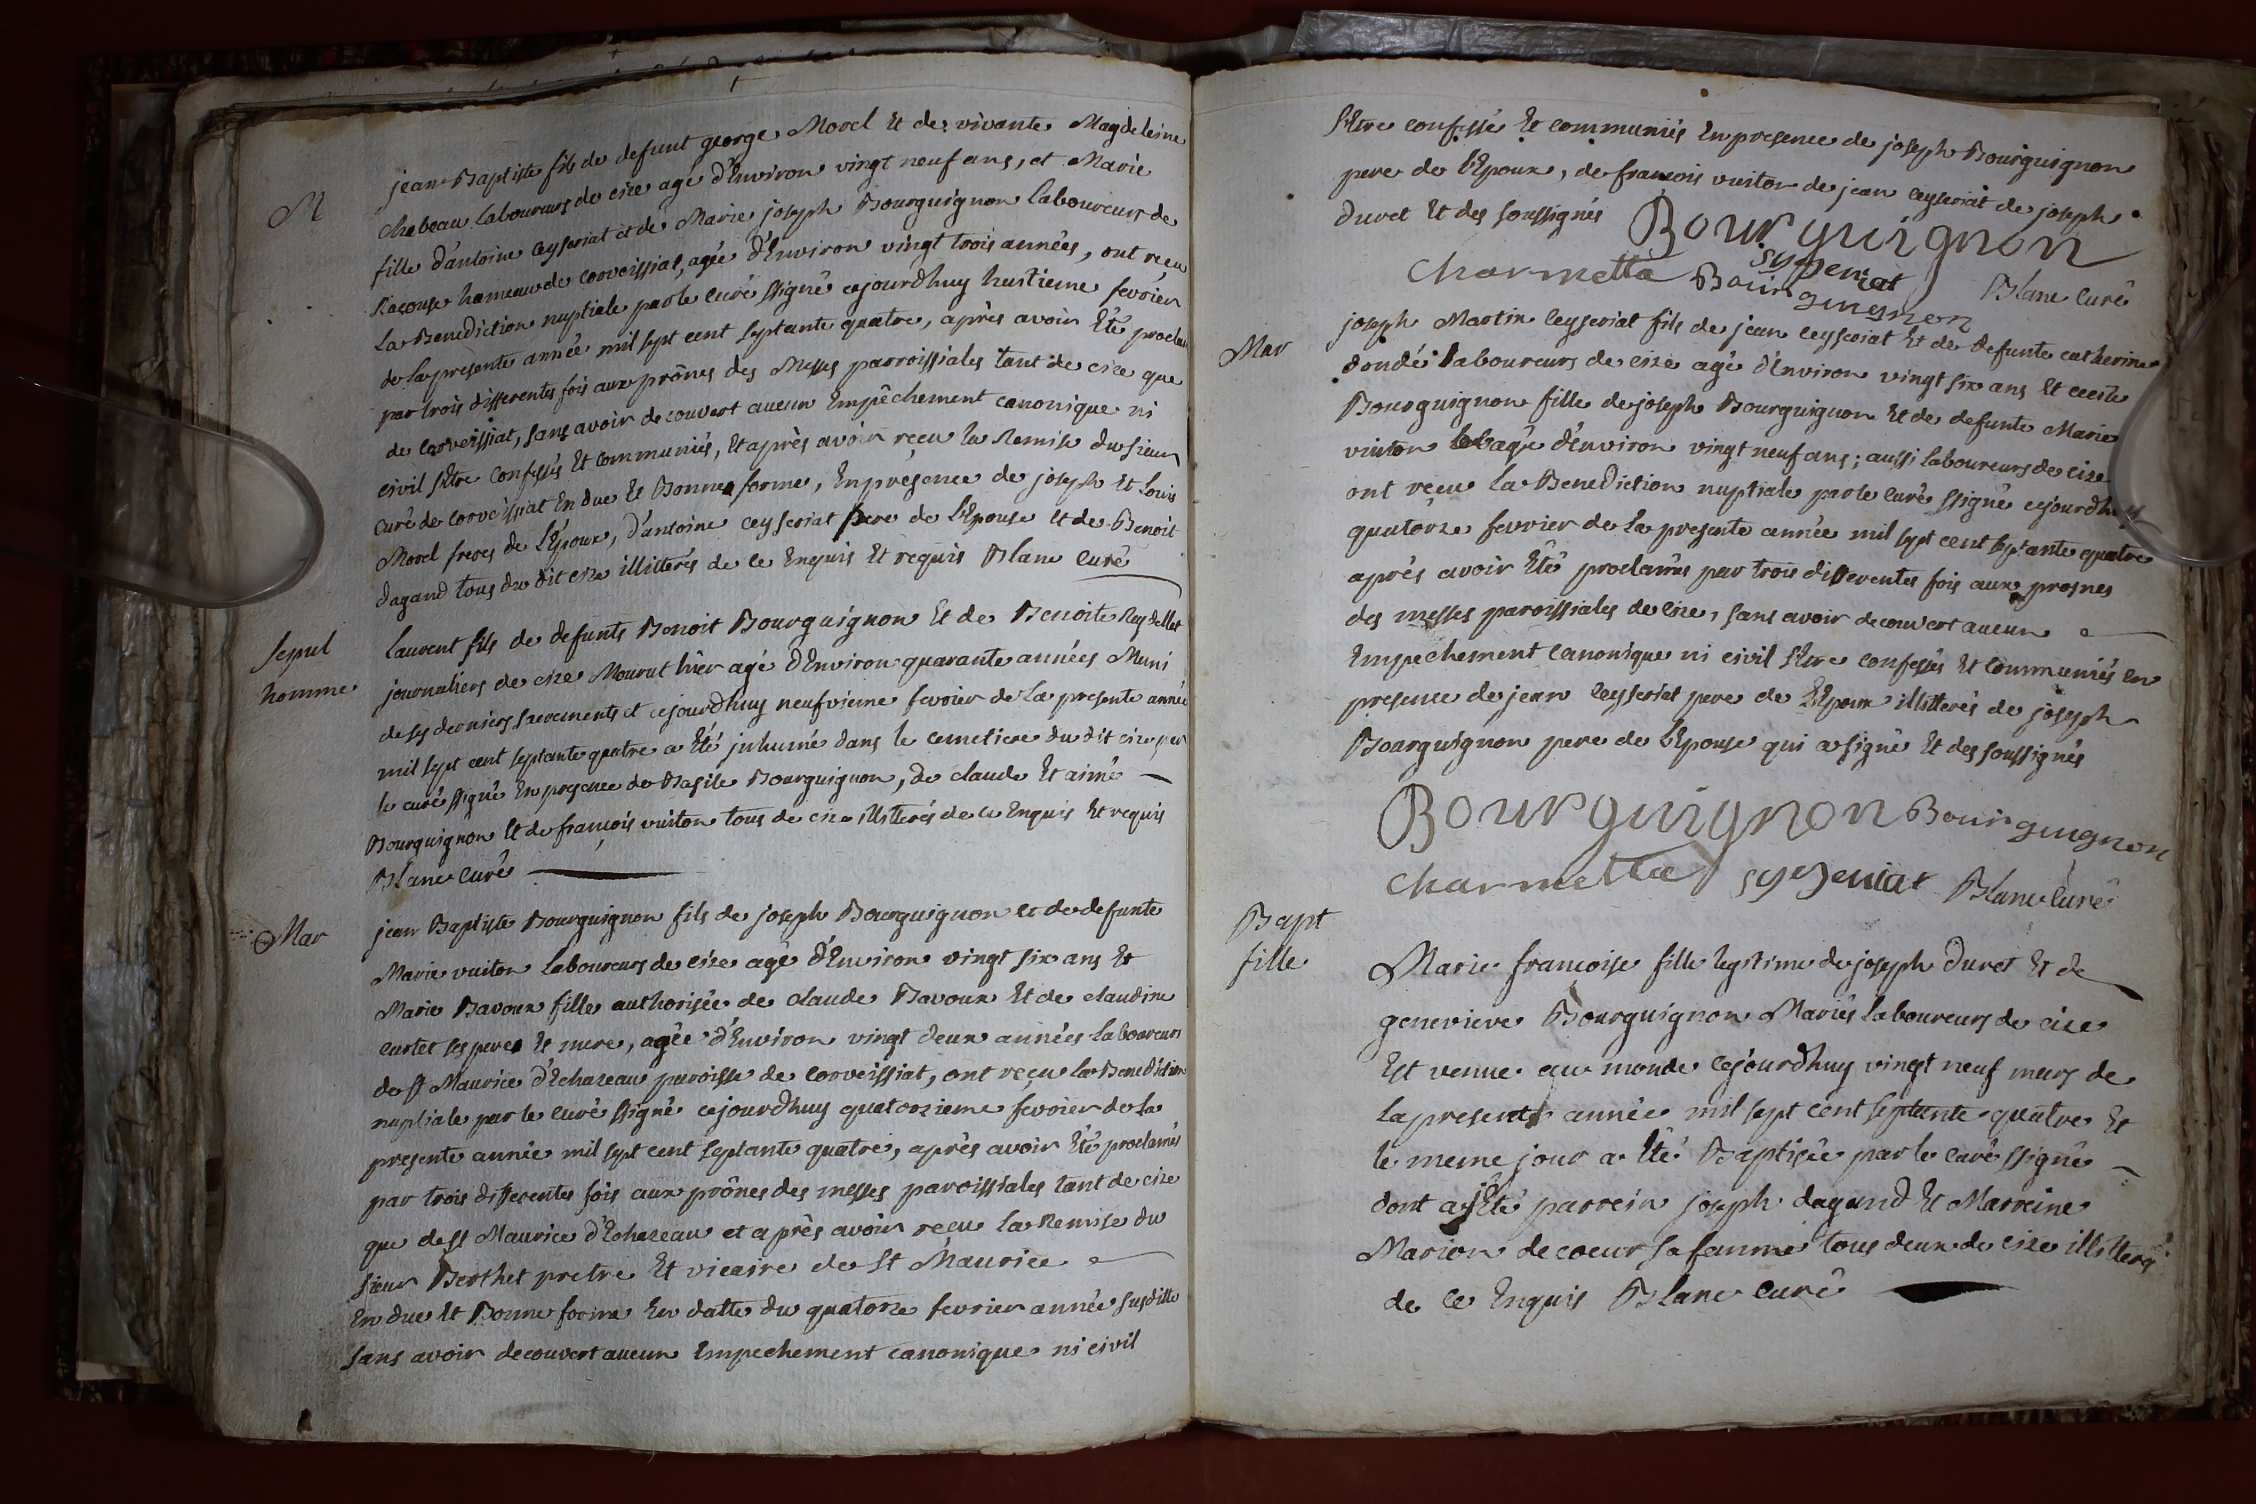 M
jean Baptiste fils de defunt george Morel Et de vivante Magdeleine
chabeau laboureurs de cize agé d'Environ vingt neuf ans, et Marie
fille d'antoine ceyseriat et de Marie joseph Bourguignon laboureurs de
hameau de corveissiat, agée d'Environ vingt trois années, ont reçu
La Benediction nuptiale par le curé ssigné cejourdhuy huitieme fevrier
de la presente année mil sept cent septante quatre, après avoir Eté proclamés
par trois differentes fois aux prônes des Messes parroissiales tant de cize que
de corveissiat, sans avoir decouvert aucun Empêchement canonique ni
civil s'Etre confessés Et communiés, Et après avoir reçu la Remise du sieur
curé de corveissiat En due Et Bonne forme, En présence de joseph Et Louis
Morel freres de l'Epoux, d'antoine ceyseriat pere de l'Epouse et de Benoit
dagand tous du dit cize illitterés de ce Enquis Et requis Blanc curé
Sepul
homme
laurent fils de defunts Benoit Bourguignon Et de Benoite Reydellet
journaliers de cize Mourut hier agé d'Environ quarante années Muni
de ses derniers sacrements et cejourdhuy neufvieme fevrier de la presente année
mil sept cent septante quatre a Eté inhumé dans le cemetiere du dit cize par
le curé ssigné En presence de Basile Bourguignon, de claude Et aimé
Bourguignon Et de françois vuiton tous de cize illitterés de ce Enquis Et requis
Blanc curé
Mar
jean Baptiste Bourguignon fils de joseph Bourguignon et de defunte
Marie vuiton laboureurs de cize agé d'Environ vingt six ans Et
Marie Bavoux fille authorisée de claude Bavoux Et de claudine
curtet ses pere Et mere, agée d'Environ vingt deux années laboureurs
de st Maurice d'Echazeau paroisse de corveissiat, ont reçu la Benediction
nuptiale par le curé ssigné cejourdhuy quatorzieme fevrier de la
presente année mil sept cent septante quatre, après avoir Eté proclamés
par trois differentes fois aux prônes des messes paroissiales tant de cize
que de st Maurice d'Echazeau et après avoir reçu la Remise du
sieur Berthet pretre Et vicaire de St Maurice
En due Et Bonne forme En datte du quatorze fevrier année susditte
sans avoir decouvert aucun Empechement canonique ni civil
s'Etre confessé Et communiés En presence de joseph Bourguignon
pere de l'Epoux, de francois vuiton de jean ceyseriat de joseph
duret Et des soussignés Bourguignon
charmetta Bourguignon syseriat Blanc curé
Mar
joseph Martin Ceyseriat fils de jean ceyseriat Et de defunte catherine
dondé laboureurs de cize agé d'Environ vingt six ans Et cecile
Bourguignon fille de joseph Bourguignon Et de defunte Marie
vuiton agée d'Environ vingt neuf ans; aussi laboureurs de cize
ont reçu la Benediction nuptiale par le curé ssigné cejourdhuy
quatorze fevrier de la presente année mil sept cent septante quatre
après avoir Eté proclamés par trois differentes fois aux prosnes
des messes paroissiales de cize, sans avoir decouvert aucun
Empechement canonique ni civil s'Etre confessés Et communiés En
presence de jean Ceyseriat pere de l'Epoux illitterés de joseph
Bourguignon pere de l'Epouse qui a signé Et des soussignés
Bourguignon Bourguignon
charmetta syseriat Blanc curé
Bapt
fille
Marie françoise fille legitime de joseph duret Et de
genevieve Bourguignon Mariés laboureurs de cize
Est venue au monde cejourdhuy vingt neuf mars de
la presente année mil sept cent septante quatre Et
le meme jour a Eté Baptisée par le curé ssigné
dont a Eté parrein joseph dagand Et Marreine
Marion decoeur sa femme tous deux de cize illitterés
de ce Enquis Blanc curé